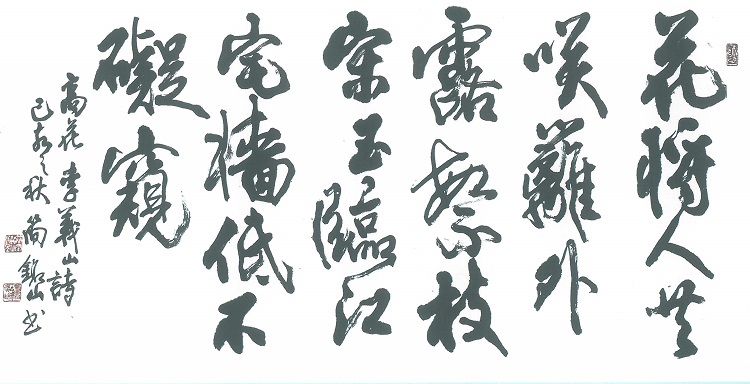 花將人共
咲籬外
露繁枝
宋玉臨江
宅墻低不
礙窺
高花 李義山詩
己亥之秋 山书